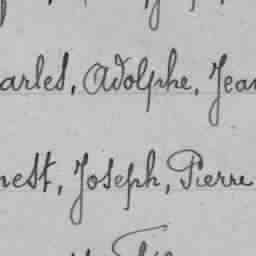 arles, Adolphe, Jean
nest, Joseph, Pierre